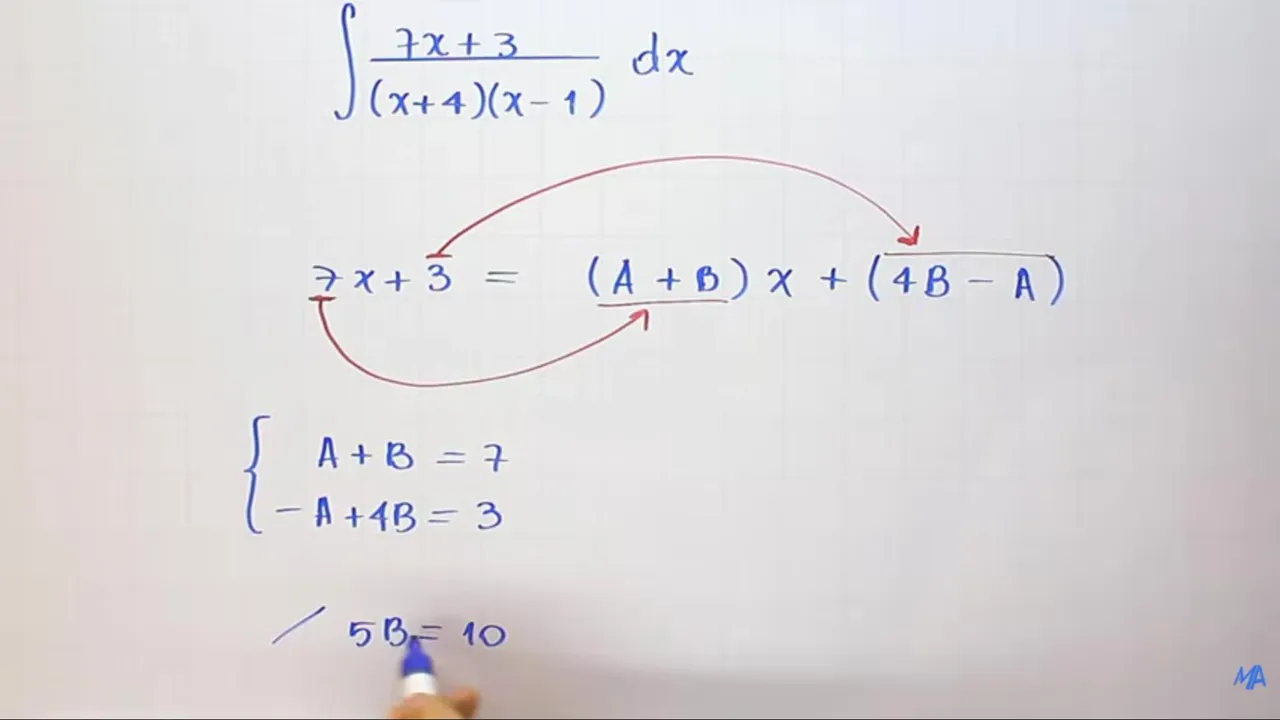 ∫ 7x + 3 / (x+4)(x-1) dx
7x + 3 = (A + B) x + (4B - A)
A + B = 7
- A + 4B = 3
/ 5B = 10
MA